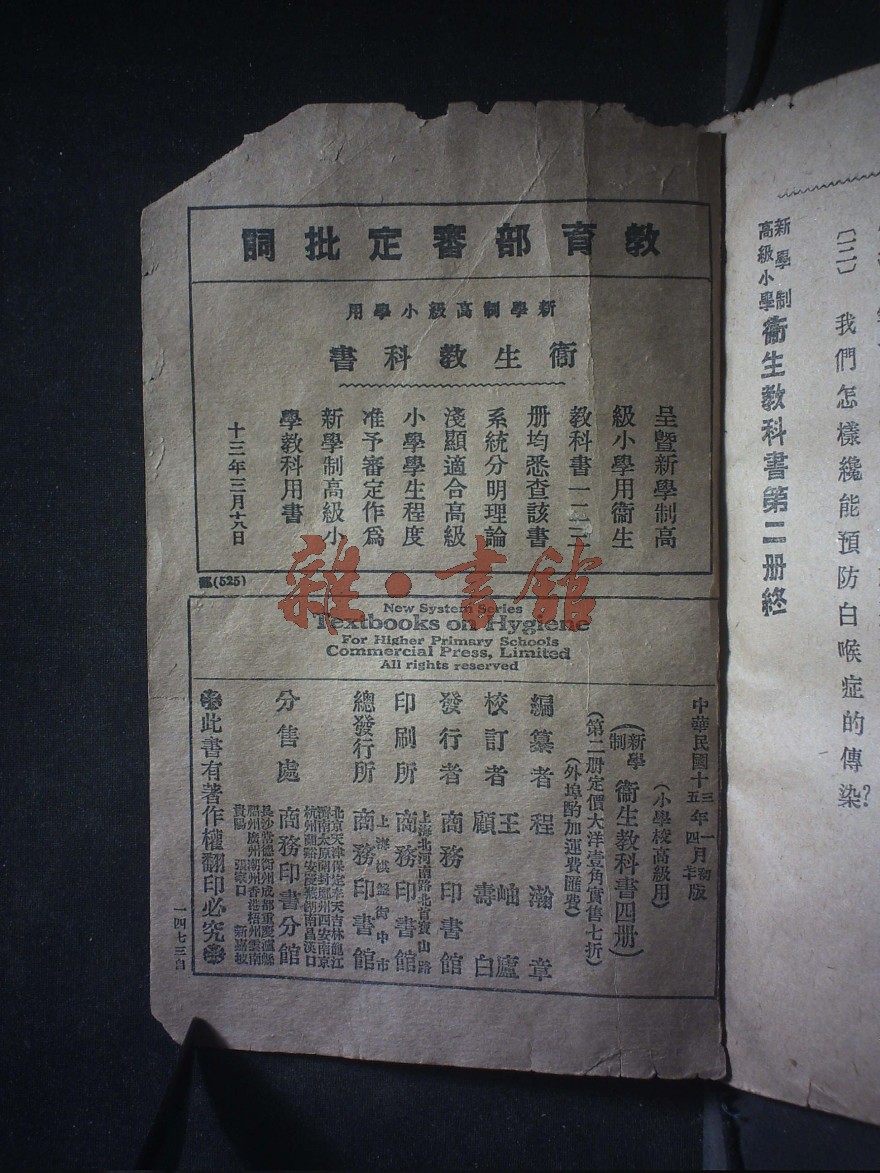 教育部審定批詞
新學制高級小學用
衞生教科書
呈暨新學制高
級小學用衞生
教科書一二三
册均悉查該書
系統分明理論
淺顯適合高級
小學學生程度
准予審定作爲
新學制高級小
學教科用書
十三年三月十八日
(525)
雜·書館
New System Series
Textbooks on Hygiene
For Higher Primary Schools
Commercial Press, Limited
All rights reserved
中華民國十三年一月初版
十五年四
(小學校高級用)
(新學制衞生教科書四册)
(第二册定價大洋壹角實售七折)
(外埠酌加運費匯費)
編纂者 程瀚章
校訂者 王岫廬
顧壽白
發行者 商務印書館
上海北河南路北首寶山路
印刷所 商務印書館
上海棋盤街中市
總發行所 商務印書館
北京天津保定奉天吉林龍江
濟南太原開封鄭州西安南京
杭州蘭谿安慶蕪湖南昌漢口
分售處 商務印書分館
長沙常德衡州成都重慶瀘縣
福州廣州潮州香港梧州雲南
貴陽 張家口 新嘉坡
此書有著作權翻印必究
一四七三自
(三) 我們怎樣纔能預防白喉症的傳染?
新學制高級小學衞生教科書第二册終